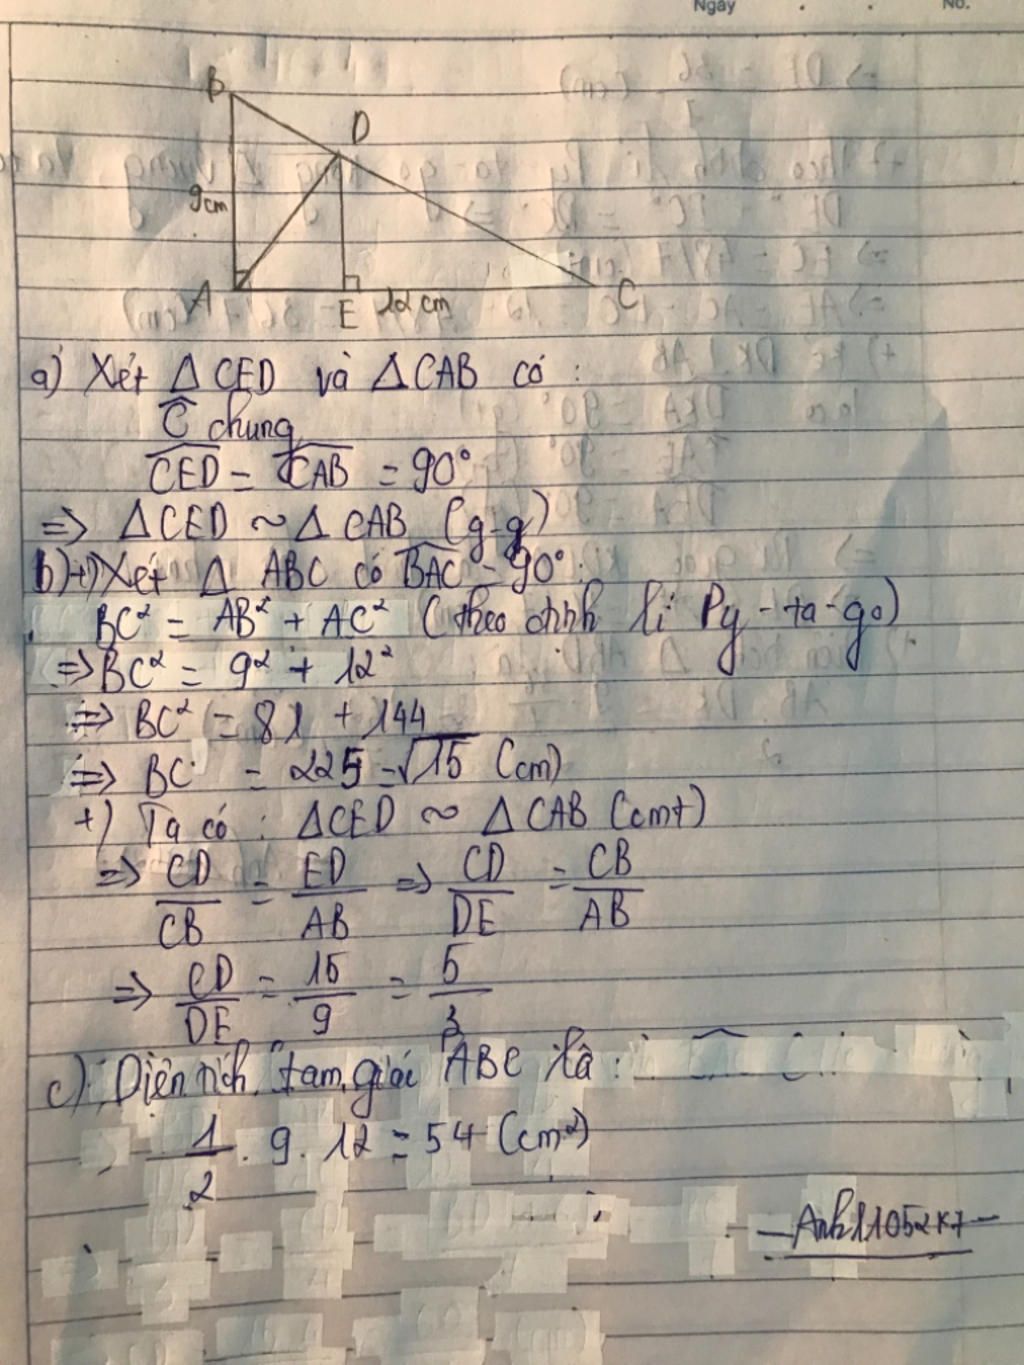 Ngày
No.
B
D
9cm
A
E
12 cm
C
a) Xét Δ CED và Δ CAB có :
Ĉ chung
CED = CAB = 90°
=> Δ CED ~ Δ CAB (g-g)
b) +) Xét Δ ABC có BAC = 90° :
BC² = AB² + AC² (theo định lí Py-ta-go)
=> BC² = 9² + 12²
=> BC² = 81 + 144
=> BC = 225 = √15 (cm)
+) Ta có : ΔCED ~ Δ CAB (cmt)
=> CD/CB = ED/AB => CD/DE = CB/AB
=> CD/DE = 15/9 = 5/3
c) Diện tích tam giác ABC là :
1/2 . 9 . 12 = 54 (cm²)
Anh11052k7